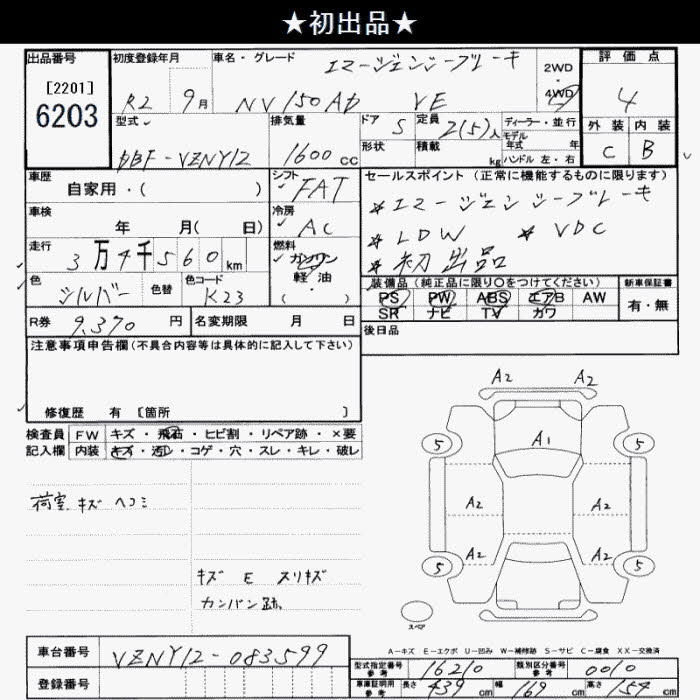 ★初出品★
出品番号
[2201]
6203
初度登録年月
R2 9月
車名・グレード
エマージェンシーブレーキ
NV150AD VE
2WD
・
4WD
評価点
4
外装 内装
C B
型式
DBF-VZNY12
排気量
1600cc
ドア 5
定員 2(5)人
ディーラー・並行
モデル
年式 年
形状
積載 kg
ハンドル 左・右
車歴
自家用・( )
シフト
FAT
セールスポイント(正常に機能するものに限ります)
*エマージェンシーブレーキ
*LDW *VDC
*初出品
車検
年 月( 日)
冷房
AC
走行
3万4千560km
燃料
ガソリン
軽油
( ・ )
色
シルバー
色替
色コード
K23
装備品(純正品に限り○をつけてください)
PS PW ABS エアB AW
SR ナビ TV カワ
新車保証書
有・無
R券 9,370円
名変期限 月 日
後日品
注意事項申告欄(不具合内容等は具体的に記入して下さい)
修復歴 有 [箇所 ]
検査員
記入欄
FW キズ・飛石・ヒビ割・リペア跡・×要
内装 キズ・汚レ・コゲ・穴・スレ・キレ・破レ
荷室 キズ ヘコミ
キズ E スリキズ
カンバン跡
A2 A2
5 A1 5
A2 A2
A2 A2
5 5
スペア
A-キズ E-エクボ U-凹み W-補修跡 S-サビ C-腐食 XX-交換済
車台番号 VZNY12-083599
登録番号
型式指定番号
参考
16210
類別区分番号
参考
0010
車庫証明用
参考
長さ 439cm 幅 169cm 高さ 154cm